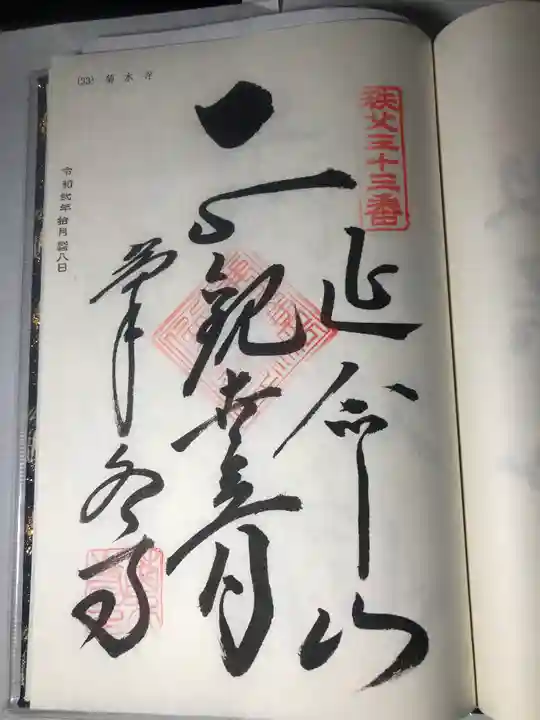 秩父三十三番
延命山
観世音
菊水寺
(33) 菊水寺
令和弐年 拾月 八日